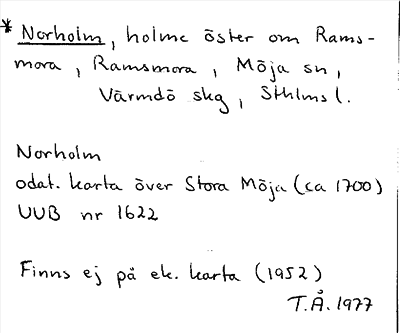 * Norholm, holme öster om Rams-
mora, Ramsmora, Möja sn,
Värmdö skg, Sthlms l.
Norholm
odat. karta över Stora Möja (ca 1700)
UUB nr 1622
Finns ej på ek. karta (1952)
T.Å. 1977